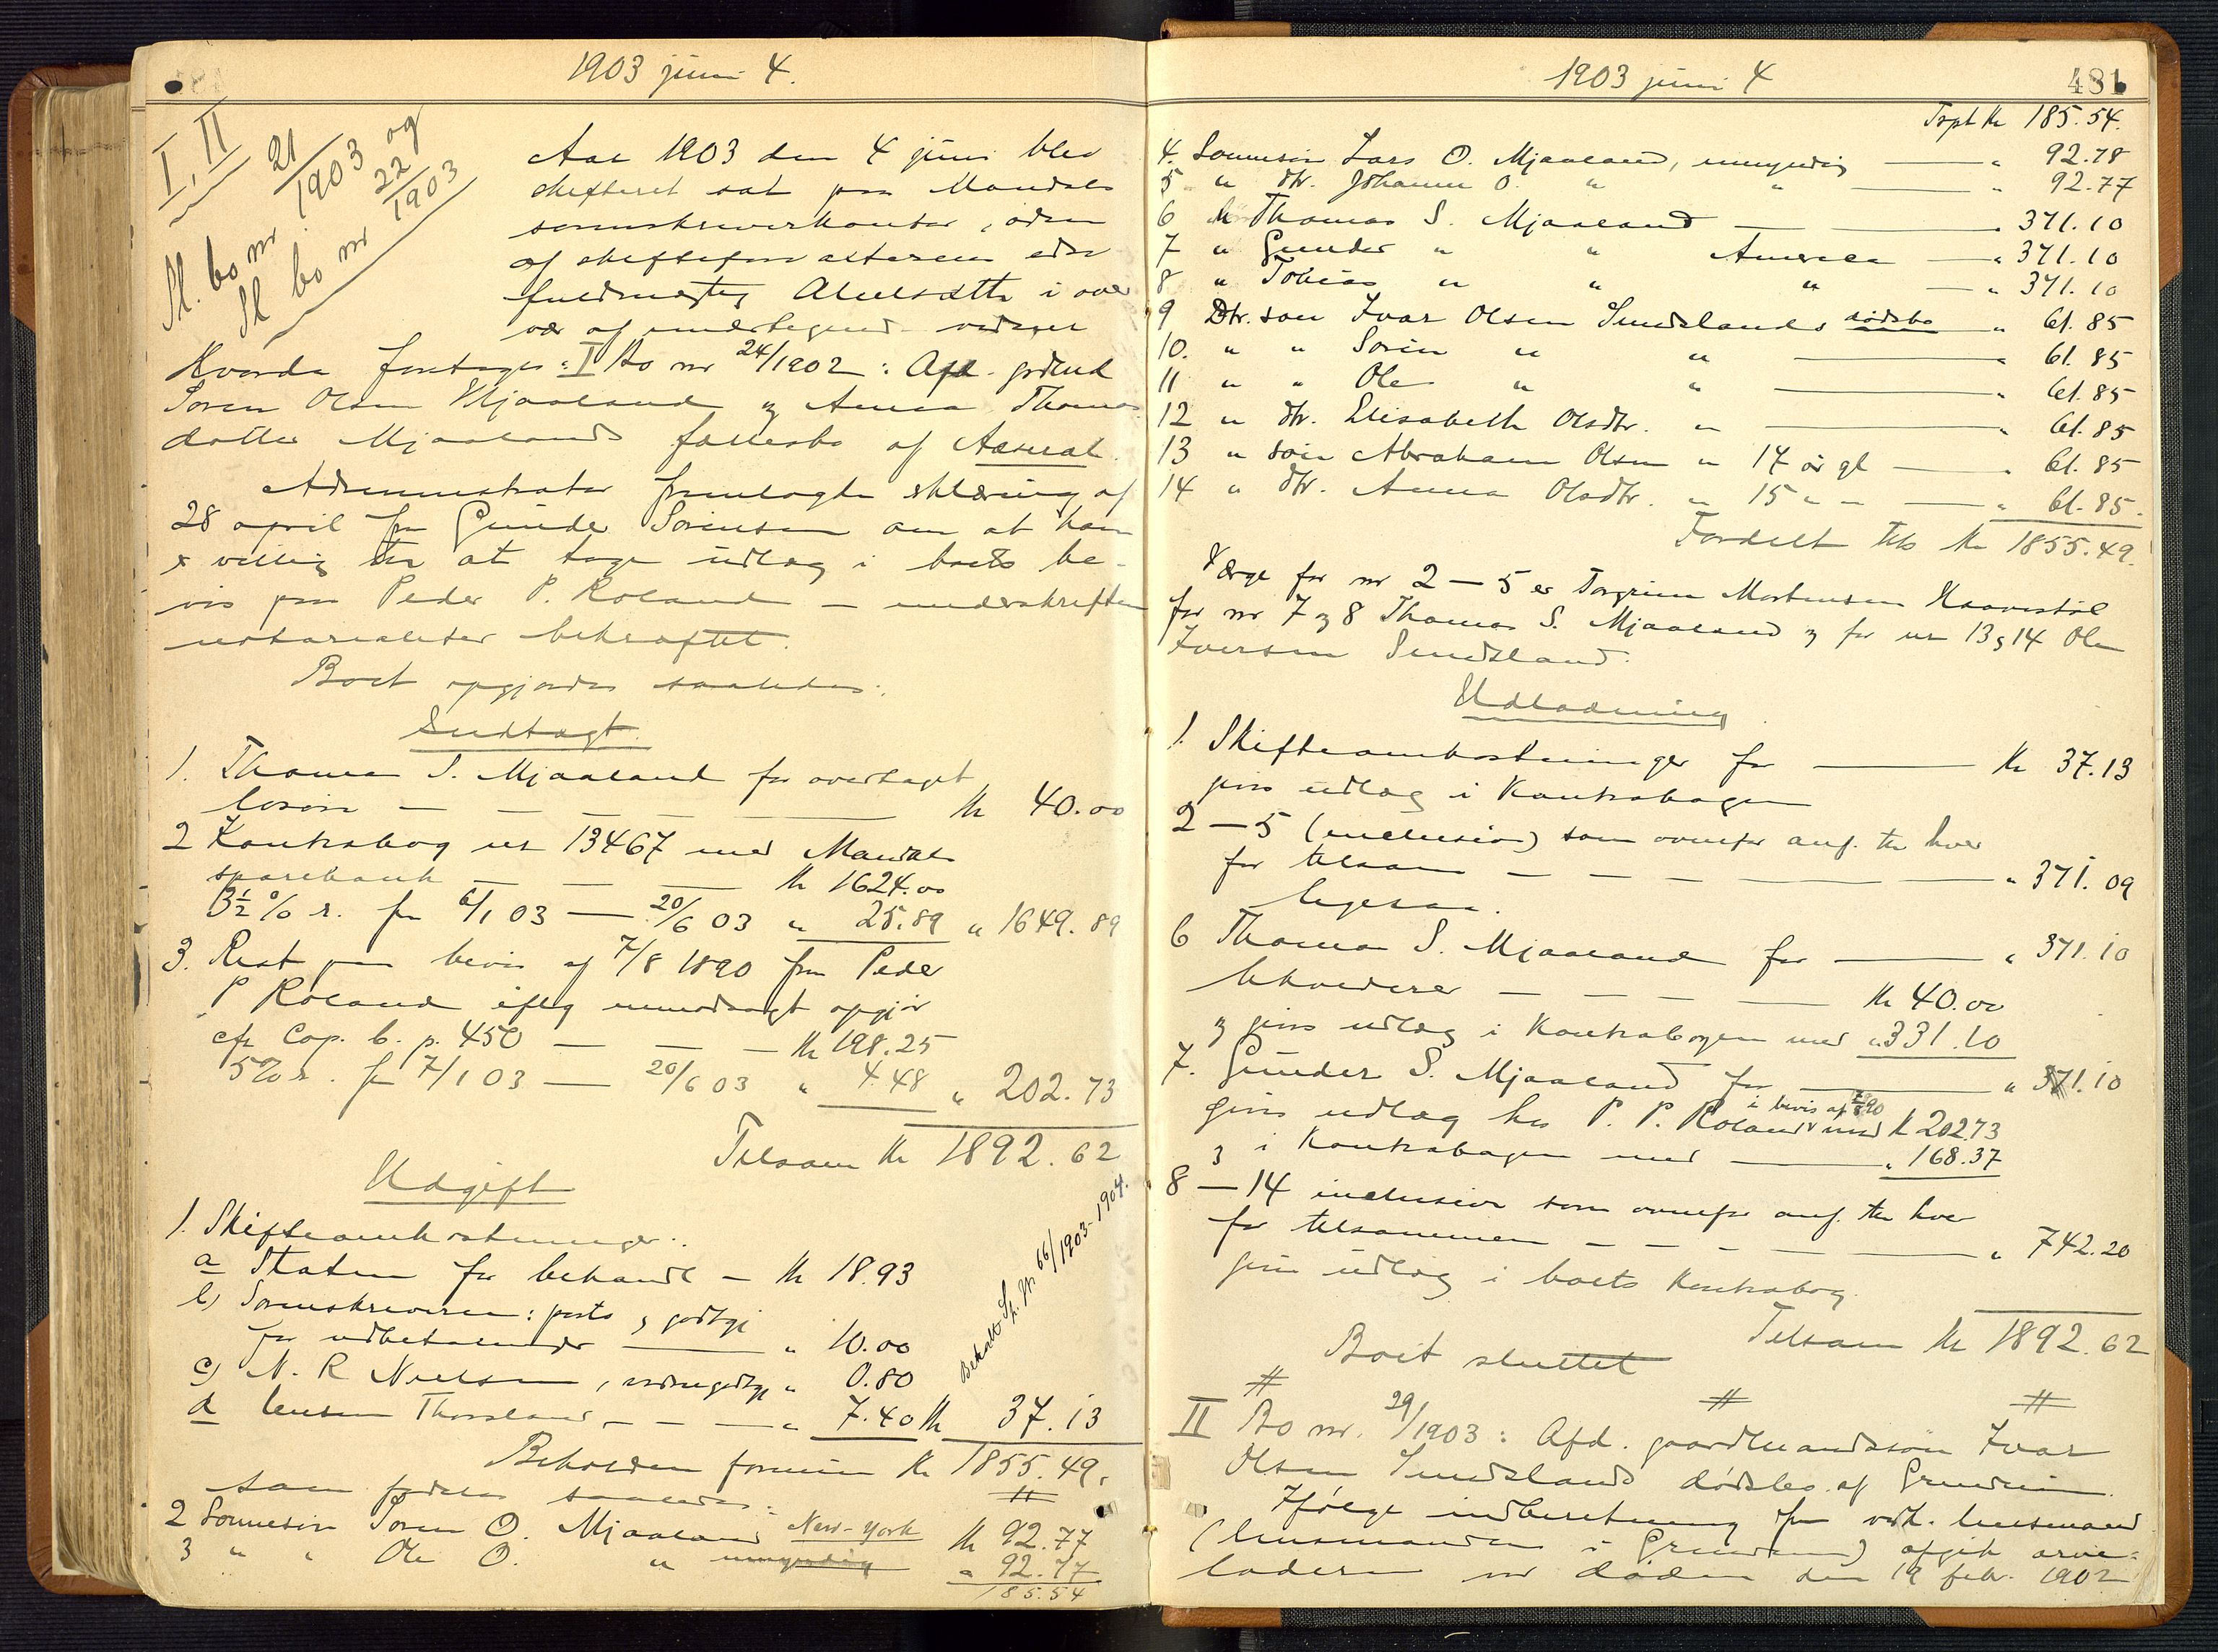 1903 juni 4.
I, II
Sk. bo nr 21/1903 og
Sk bo nr 22/1903
Aar 1903 den 4 juni blev
skifteret sat paa Mandals
sorenskriverkontor, 
af skifteforvalteren 
fuldmægtig i over
vær af undertegnede vidner
Hvorda foretoges: I Bo nr 24/1902: Afd. grdmd
Soren Olsen Mjaaland og Anna Thomas
datter Mjaalands fællesbo af Aaseral.
Administrator fremlagte erklæring af
28 april fra Gunder Sorensen om at han
er villig til at tage udlæg i boets be-
vis paa Peder P. Roland — underskriften
notarialiter bekræftet.
Boet opgjordes saaledes:
Indtægt.
1. Thomas S. Mjaaland for overtaget
losøre — — — Kr 40.00
2 Kontrabog nr 13467 med Mandals
sparebank — — — Kr 1624.00
3½ % r. fra 6/1 03 — 20/6 03 " 25.89 " 1649.89
3. Rest paa bevis af 7/8 1890 fra Peder
P Roland iflg opgjør
cfr Cop. b. p. 450 — — — Kr 198.25
5% r. fra 7/1 03 — 20/6 03 " 4.48 " 202.73
Tilsam Kr 1892.62
Udgift
1. Skifteomkostninger:
a Staten for behandl — Kr 18.93
b) Sorenskriveren: porto og godtgj
for udbetalinger — " 10.00
c) N. R Nielsen, vidnegodtgj " 0.80
d lensm Thorsland — — — " 7.40 Kr 37.13
Betalt Sp. Nr 66/1903-1904.
Beholden formue Kr 1855.49.
som fordeles saaledes:
2 Sonneson Soren O. Mjaaland New-York Kr 92.77
3 " " Ole O. " umyndig " 92.77
185.54
1903 juni 4
481
Trspt Kr 185.54.
4. Sonneson Lars O. Mjaaland, umyndig — " 92.78
5 " dtr. Johanne O. " " — " 92.77
6 Thomas S. Mjaaland — — " 371.10
7 " Gunder " " Amerika — " 371.10
8 " Tobias " " " — " 371.10
9 Dtr. søn Ivar Olsen Sundslands dødsbo " 61.85
10. " " Sorin " " — " 61.85
11 " " Ole " " — " 61.85
12 " dtr. Elisabeth Olsdtr. " — " 61.85
13 " søn Abraham Olsen " 17 år gl — " 61.85
14 " dtr. Anna Olsdtr. " 15 " " — " 61.85.
Fordelt tils Kr 1855.49.
Værge for nr 2 — 5 er Torgrim Mortensen Haaverstøl
for nr 7 og 8 Thomas S. Mjaaland og for nr 13 og 14 Ole
Iversen Sundsland.
Udlodning.
1. Skifteomkostninger for — Kr 37.13
gives udlæg i Kontrabogen
2 — 5 (inclusive) som ovenfor anf. til hver
for tilsam — — — " 371.09
ligesaa.
6 Thomas S. Mjaaland for — " 371.10
likviderer — — — Kr 40.00
og gives udlæg i Kontrabogen med " 331.10
7. Gunder S. Mjaaland for — " 371.10
gives udlæg hos P. P. Roland i bevis af 7/8 90 med K 202.73
og i Kontrabogen med — " 168.37
8 — 14 inclusive som ovenfor anf. til hver
for tilsammen — — — " 742.20
gives udlæg i boets Kontrabog.
Tilsam Kr 1892.62
Boet sluttet
II Bo nr. 29/1903: Afd. gaardmandssøn Ivar
Olsen Sundslands dødsbo af Grindum.
Ifølge indberetning fra vedk. lensmand
(lensmanden i Grindum) afgik arve-
laderen ved døden den 19 febr. 1902